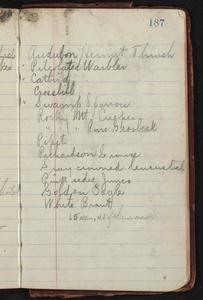 187
Audubon Hermit Thrush
" Pileolated Warbler
" Catbird
Crossbill
" Swamp Sparrow
Rocky Mt. Creeper
" " Pine Grosbeak
Pipit
Richardson Grouse
Gray crowned Leucosticte
Pink sided Junco
Golden Eagle
White Brant
15 seen, 41 of Summer